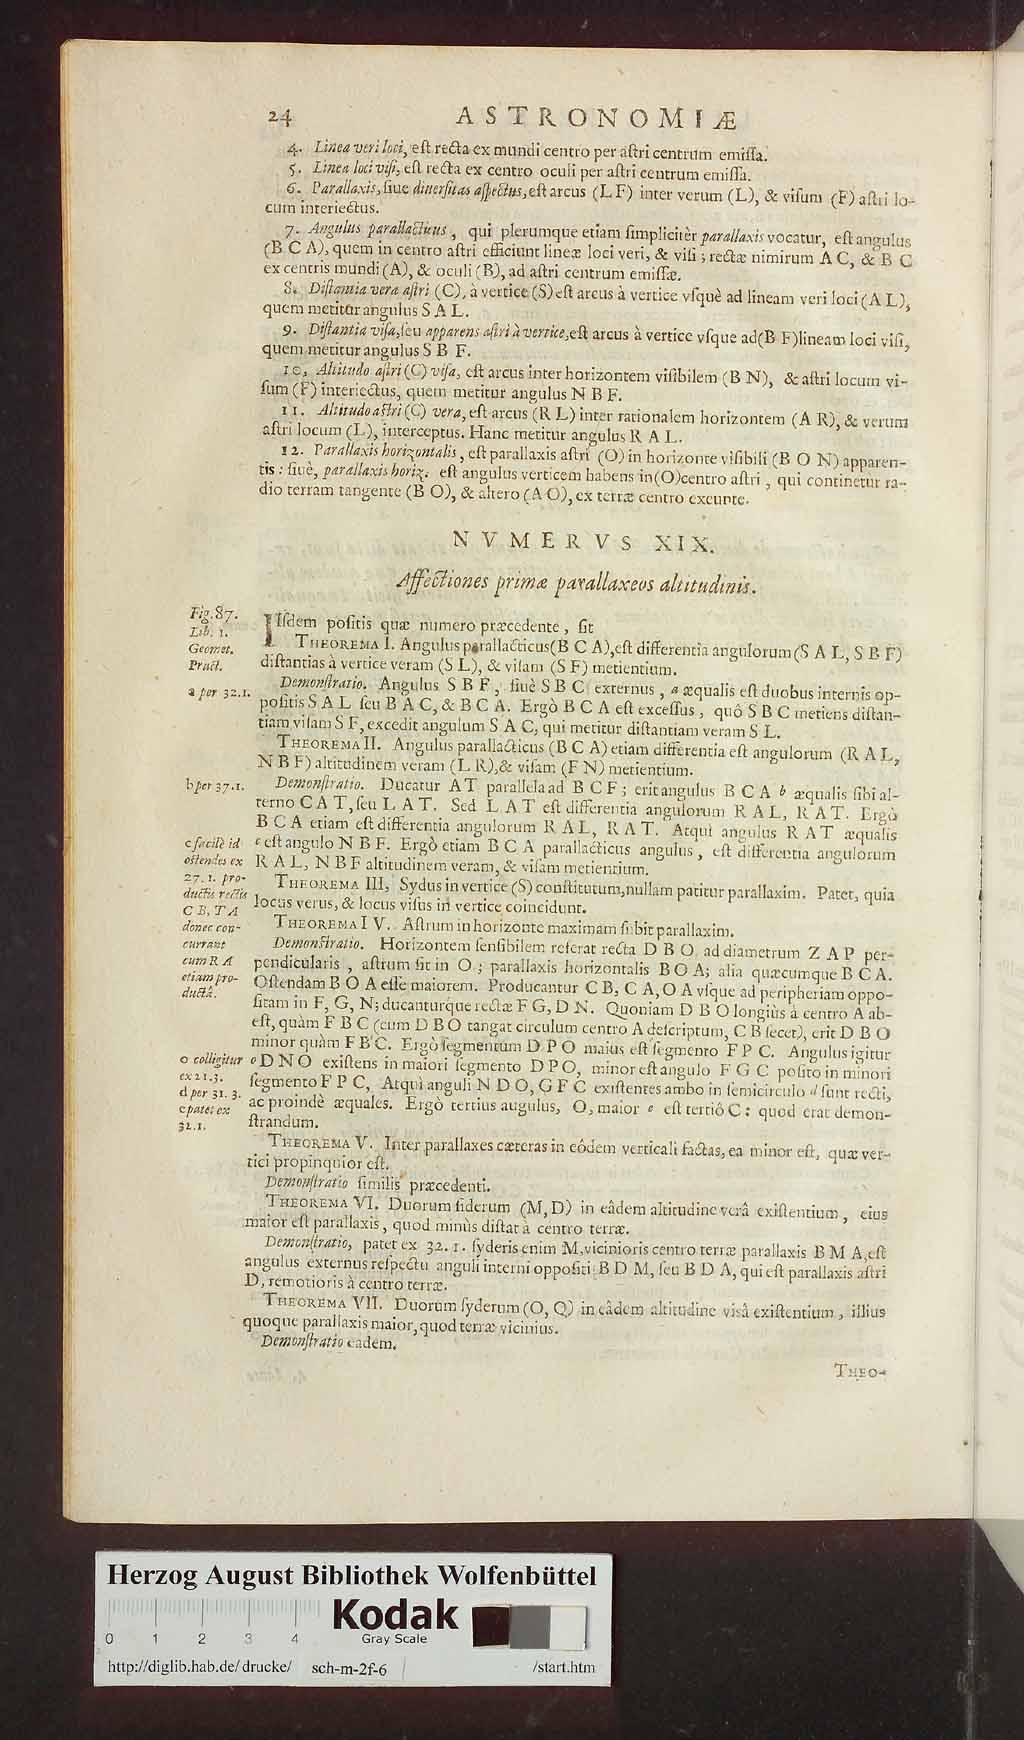 24 ASTRONOMIÆ
4. Linea veri loci, eſt recta ex mundi centro per aſtri centrum emiſſa.
5. Linea loci viſi, eſt recta ex centro oculi per aſtri centrum emiſſa.
6. Parallaxis, ſiue diuerſitas aſpectus, eſt arcus (L F) inter verum (L), & viſum (F) aſtri lo-
cum interiectus.
7. Angulus parallacticus, qui plerumque etiam ſimplicitèr parallaxis vocatur, eſt angulus
(B C A), quem in centro aſtri efficiunt lineæ loci veri, & viſi; rectæ nimirum A C, & B C
ex centris mundi (A), & oculi (B), ad aſtri centrum emiſſæ.
8. Diſtantia vera aſtri (C), à vertice (S) eſt arcus à vertice vſquè ad lineam veri loci (A L),
quem metitur angulus S A L.
9. Diſtantia viſa, ſeu apparens aſtri à vertice, eſt arcus à vertice vſque ad (B F) lineam loci viſi,
quem metitur angulus S B F.
10. Altitudo aſtri (C) viſa, eſt arcus inter horizontem viſibilem (B N), & aſtri locum vi-
ſum (F) interiectus, quem metitur angulus N B F.
11. Altitudo aſtri (C) vera, eſt arcus (R L) inter rationalem horizontem (A R), & verum
aſtri locum (L), interceptus. Hanc metitur angulus R A L.
12. Parallaxis horizontalis, eſt parallaxis aſtri (O) in horizonte viſibili (B O N) apparen-
tis: ſiuè, parallaxis horiz. eſt angulus verticem habens in (O) centro aſtri, qui continetur ra-
dio terram tangente (B O), & altero (A O), ex terræ centro exeunte.
NVMERVS XIX.
Affectiones primæ parallaxeos altitudinis.
Fig. 87.
Lib. 1.
Geomet.
Pract.
IIſdem poſitis quæ numero præcedente, ſit
THEOREMA I. Angulus parallacticus (B C A), eſt differentia angulorum (S A L, S B F)
diſtantias à vertice veram (S L), & viſam (S F) metientium.
a per 32.1.
Demonſtratio. Angulus S B F, ſiuè S B C externus, a æqualis eſt duobus internis op-
poſitis S A L ſeu B A C, & B C A. Ergò B C A eſt exceſſus, quô S B C metiens diſtan-
tiam viſam S F, excedit angulum S A C, qui metitur diſtantiam veram S L.
THEOREMA II. Angulus parallacticus (B C A) etiam differentia eſt angulorum (R A L,
N B F) altitudinem veram (L R), & viſam (F N) metientium.
b per 37.1.
Demonſtratio. Ducatur A T parallela ad B C F; erit angulus B C A b æqualis ſibi al-
terno C A T, ſeu L A T. Sed L A T eſt differentia angulorum R A L, R A T. Ergò
B C A etiam eſt differentia angulorum R A L, R A T. Atqui angulus R A T æqualis
c eſt angulo N B F. Ergò etiam B C A parallacticus angulus, eſt differentia angulorum
R A L, N B F altitudinem veram, & viſam metientium.
c facilè id
oſtendes ex
27. 1. pro-
ductis rectis
C B, T A
donec con-
currant
cum R A
etiam pro-
ductâ.
THEOREMA III. Sydus in vertice (S) conſtitutum, nullam patitur parallaxim. Patet, quia
locus verus, & locus viſus in vertice coincidunt.
THEOREMA IV. Aſtrum in horizonte maximam ſubit parallaxim.
Demonſtratio. Horizontem ſenſibilem referat recta D B O ad diametrum Z A P per-
pendicularis, aſtrum ſit in O; parallaxis horizontalis B O A; alia quæcumque B C A.
Oſtendam B O A eſſe maiorem. Producantur C B, C A, O A vſque ad peripheriam oppo-
ſitam in F, G, N; ducanturque rectæ F G, D N. Quoniam D B O longiùs à centro A ab-
eſt, quàm F B C (cum D B O tangat circulum centro A deſcriptum, C B ſecet), erit D B O
minor quàm F B C. Ergò ſegmentum D P O maius eſt ſegmento F P C. Angulus igitur
o D N O exiſtens in maiori ſegmento D P O, minor eſt angulo F G C poſito in minori
ſegmento F P C, Atqui anguli N D O, G F C exiſtentes ambo in ſemicirculo d ſunt recti,
ac proindè æquales. Ergò tertius augulus, O, maior e eſt tertiô C: quod erat demon-
ſtrandum.
o colligitur
ex 21.3.
d per 31. 3.
e patet ex
32.1.
THEOREMA V. Inter parallaxes cæteras in eôdem verticali factas, ea minor eſt, quæ ver-
tici propinquior eſt.
Demonſtratio ſimilis præcedenti.
THEOREMA VI. Duorum ſiderum (M, D) in eâdem altitudine verâ exiſtentium, eius
maior eſt parallaxis, quod minùs diſtat à centro terræ.
Demonſtratio, patet ex 32. 1. ſyderis enim M, vicinioris centro terræ parallaxis B M A, eſt
angulus externus reſpectu anguli interni oppoſiti B D M, ſeu B D A, qui eſt parallaxis aſtri
D, remotioris à centro terræ.
THEOREMA VII. Duorum ſyderum (O, Q) in eâdem altitudine visâ exiſtentium, illius
quoque parallaxis maior, quod terræ vicinius.
Demonſtratio eadem.
THEO-
Herzog August Bibliothek Wolfenbüttel
Kodak
Gray Scale
0 1 2 3 4
http://diglib.hab.de/drucke/ sch-m-2f-6 /start.htm